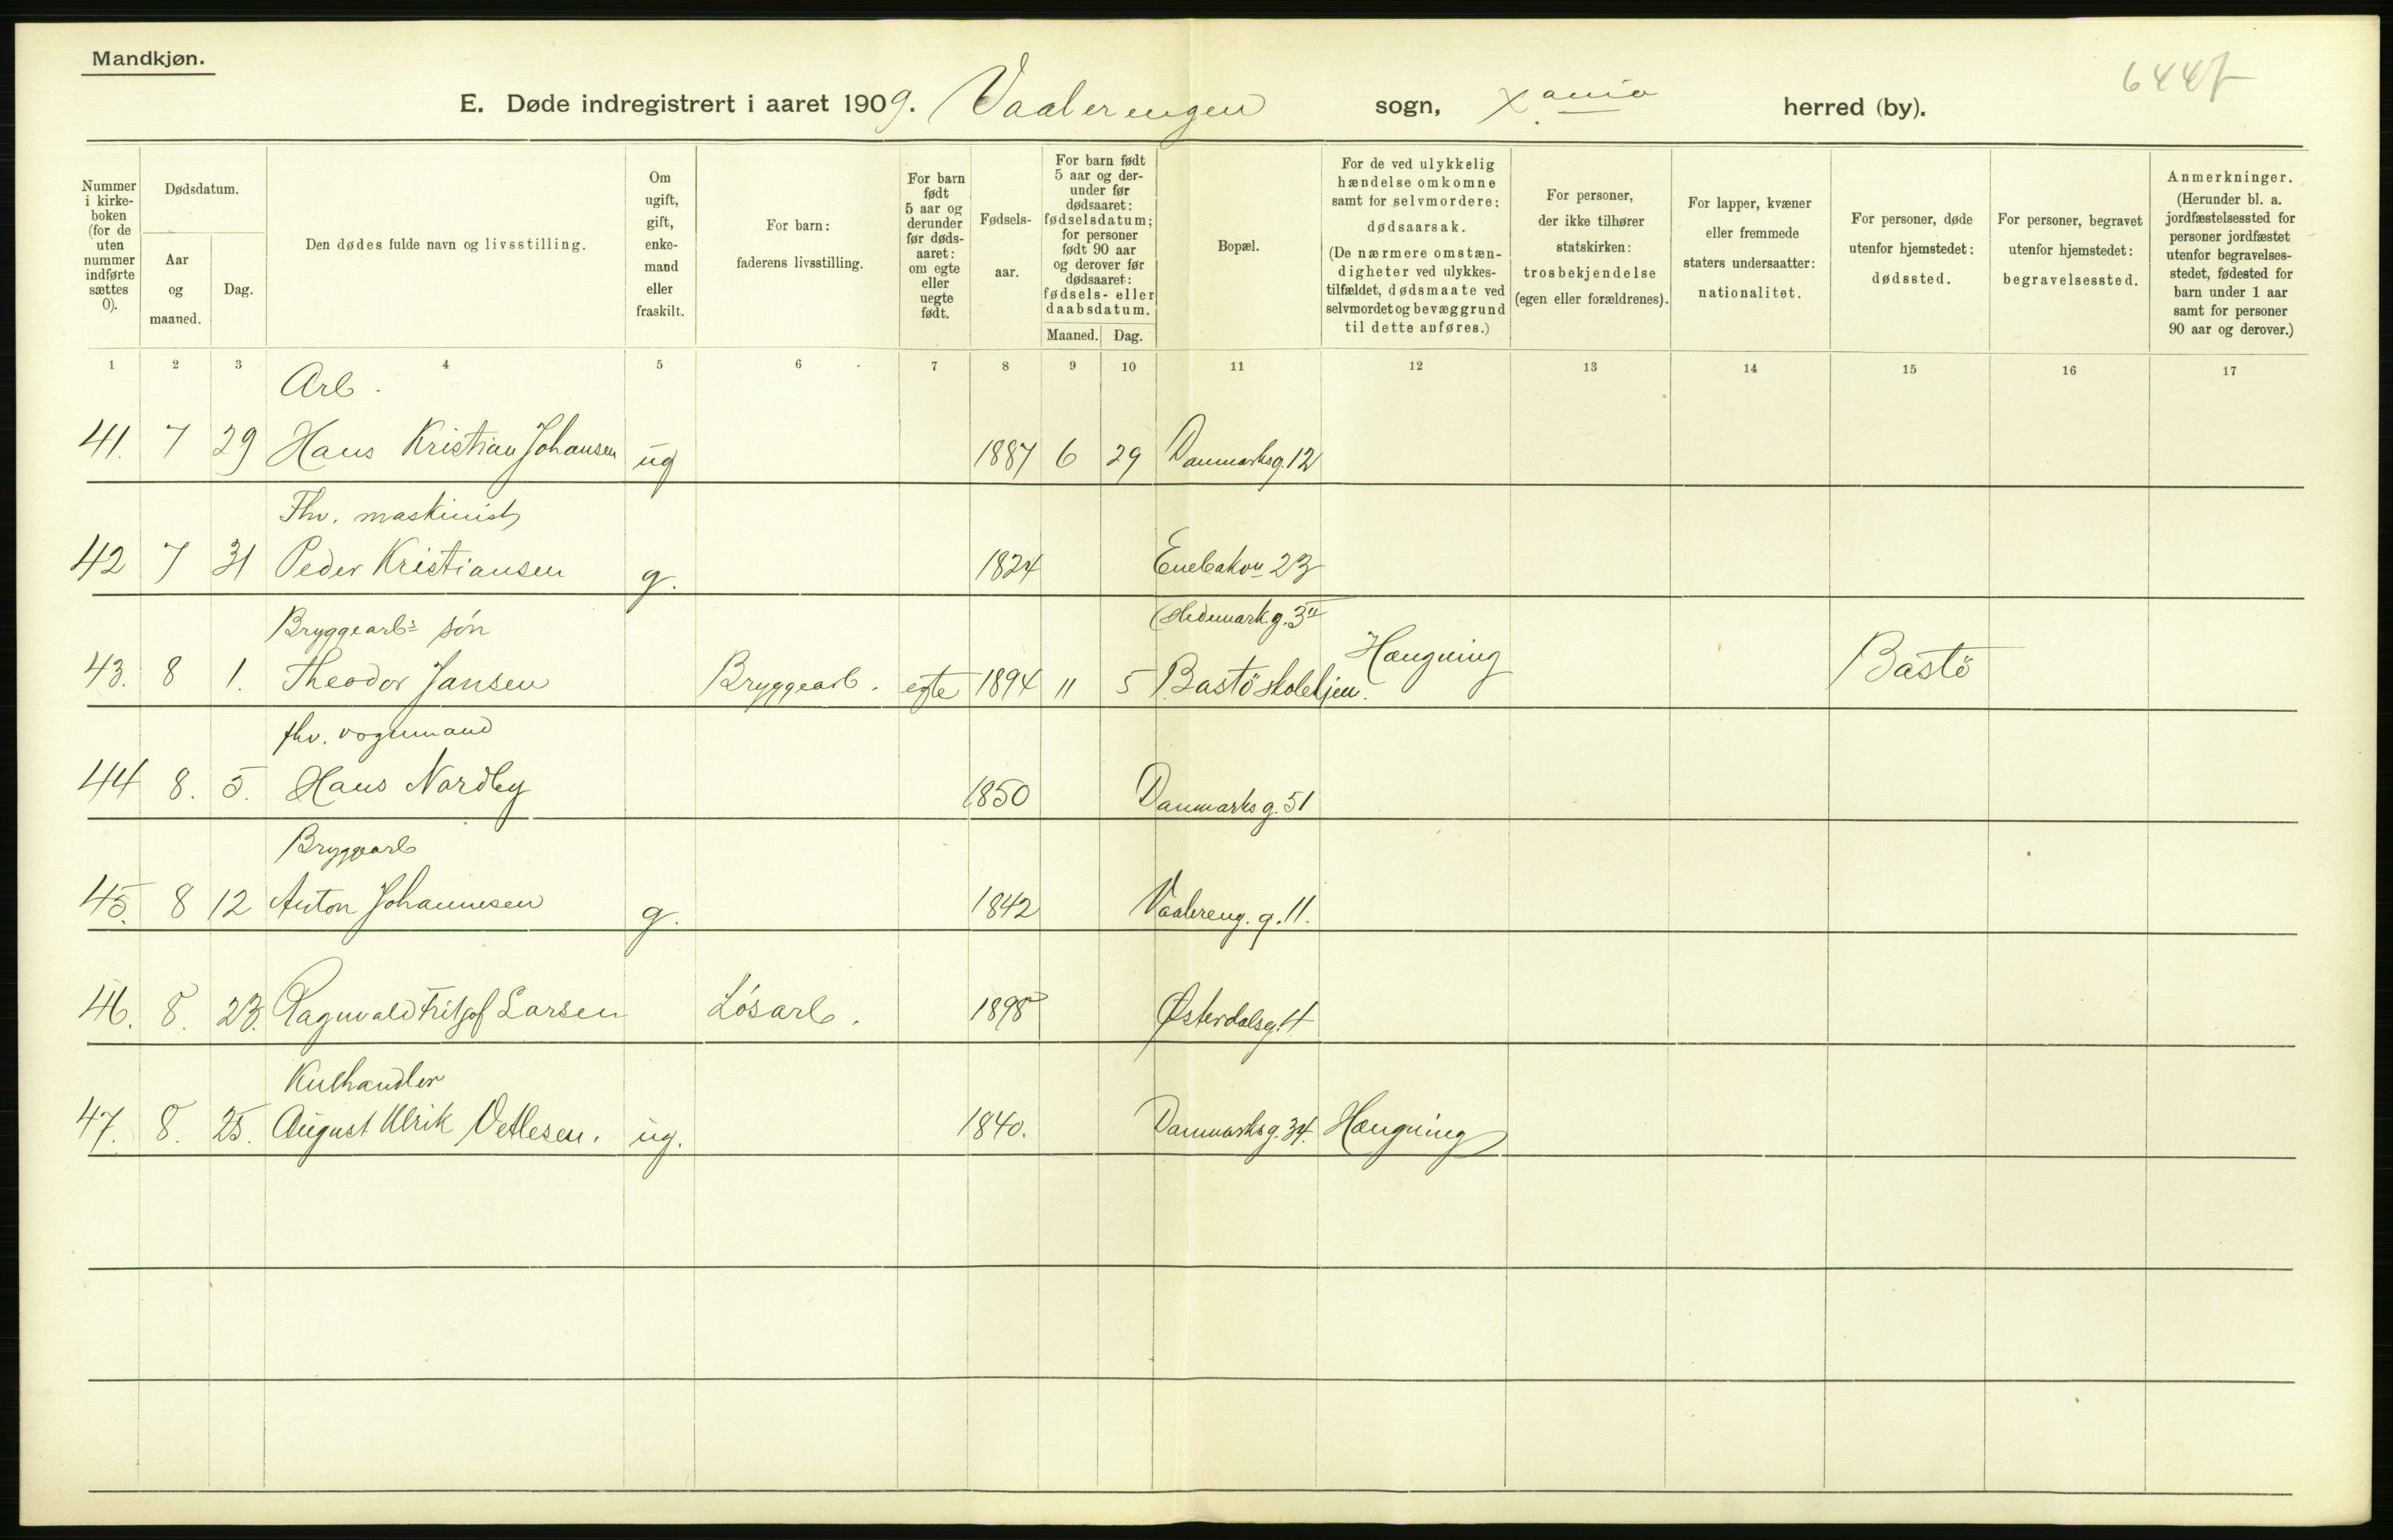 Mandkjøn.
6447
E. Døde indregistrert i aaret 1909. Vaalerengen sogn, Xania herred (by).
Nummer i kirke-boken (for de uten nummer indførte sættes 0).
Dødsdatum.
Aar og maaned.
Dag.
Den dødes fulde navn og livsstilling.
Om ugift, gift, enke-mand eller fraskilt.
For barn: faderens livsstilling.
For barn født 5 aar og derunder før døds-aaret: om egte eller uegte født.
Fødsels-aar.
For barn født 5 aar og der-under før dødsaaret: fødselsdatum; for personer født 90 aar og derover før dødsaaret: fødsels- eller daabsdatum.
Maaned. Dag.
Bopæl.
For de ved ulykkelig hændelse omkomne samt for selvmordere: dødsaarsak. (De nærmere omstæn-digheter ved ulykkes-tilfældet, dødsmaate ved selvmordet og bevæggrund til dette anføres.)
For personer, der ikke tilhører statskirken: trosbekjendelse (egen eller forældrenes).
For lapper, kvæner eller fremmede staters undersaatter: nationalitet.
For personer, døde utenfor hjemstedet: dødssted.
For personer, begravet utenfor hjemstedet: begravelsessted.
Anmerkninger. (Herunder bl. a. jordfæstelsessted for personer jordfæstet utenfor begravelses-stedet, fødested for barn under 1 aar samt for personer 90 aar og derover.)
1 2 3 4 5 6 7 8 9 10 11 12 13 14 15 16 17
Arb.
41. 7 29 Hans Kristian Johansen ug 1887 6 29 Danmarksg. 12
Fhv. maskinist
42 7 31 Peder Kristiansen g. 1824 Enebakvn 23
Bryggearbs søn (Hedemarkg. 3II
43. 8 1. Theodor Jansen Bryggearb. egte 1894 11 5 Bastö skolehjem. Hængning Bastö
fhv. vognmand
44 8. 5. Hans Nordby 1850 Danmarksg. 51
Bryggearb
45. 8 12 Anton Johannesen g. 1842 Vaalereng. g. 11.
46. 8. 23. Ragnvald Fritjof Larsen Løsarb. 1898 Østerdalsg. 4
Kulhandler
47. 8. 25. August Ulrik Vetlesen. ug. 1840. Danmarksg. 34. Hængning